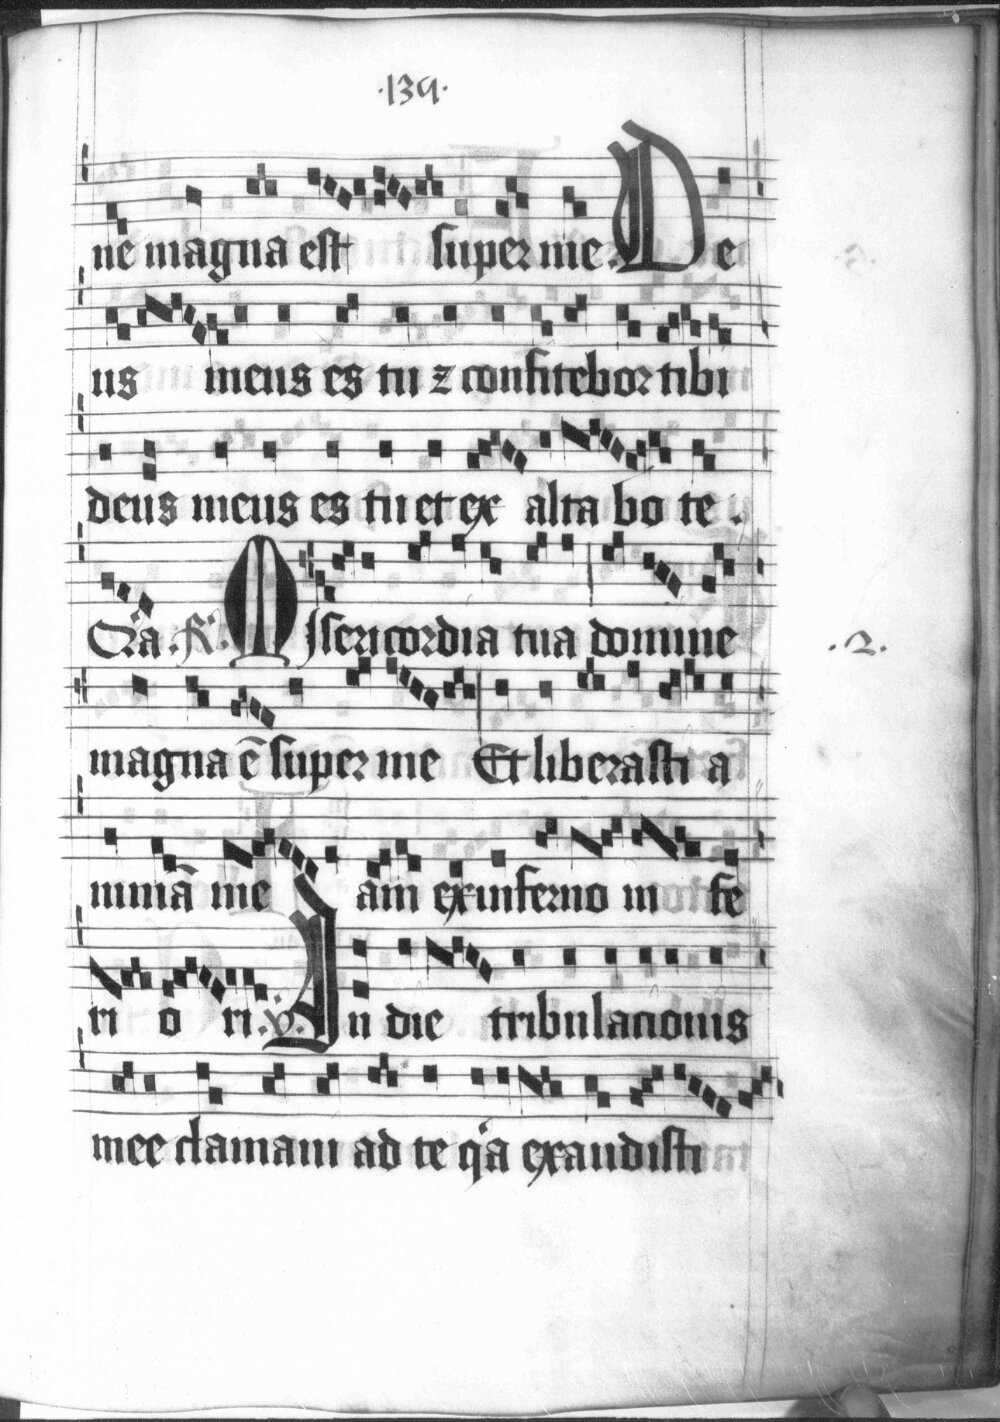 ·139·
ne magna est super me. De
us meus es tu z confitebor tibi
deus meus es tu et ex alta bo te.
Q̃a. R̃. Misericordia tua domine
·2·
magna ē super me Et liberasti a
nimā me am ex inferno in fe
ri o ri. v̇. In die tribulacionis
mee clamaui ad te q̃a exaudisti